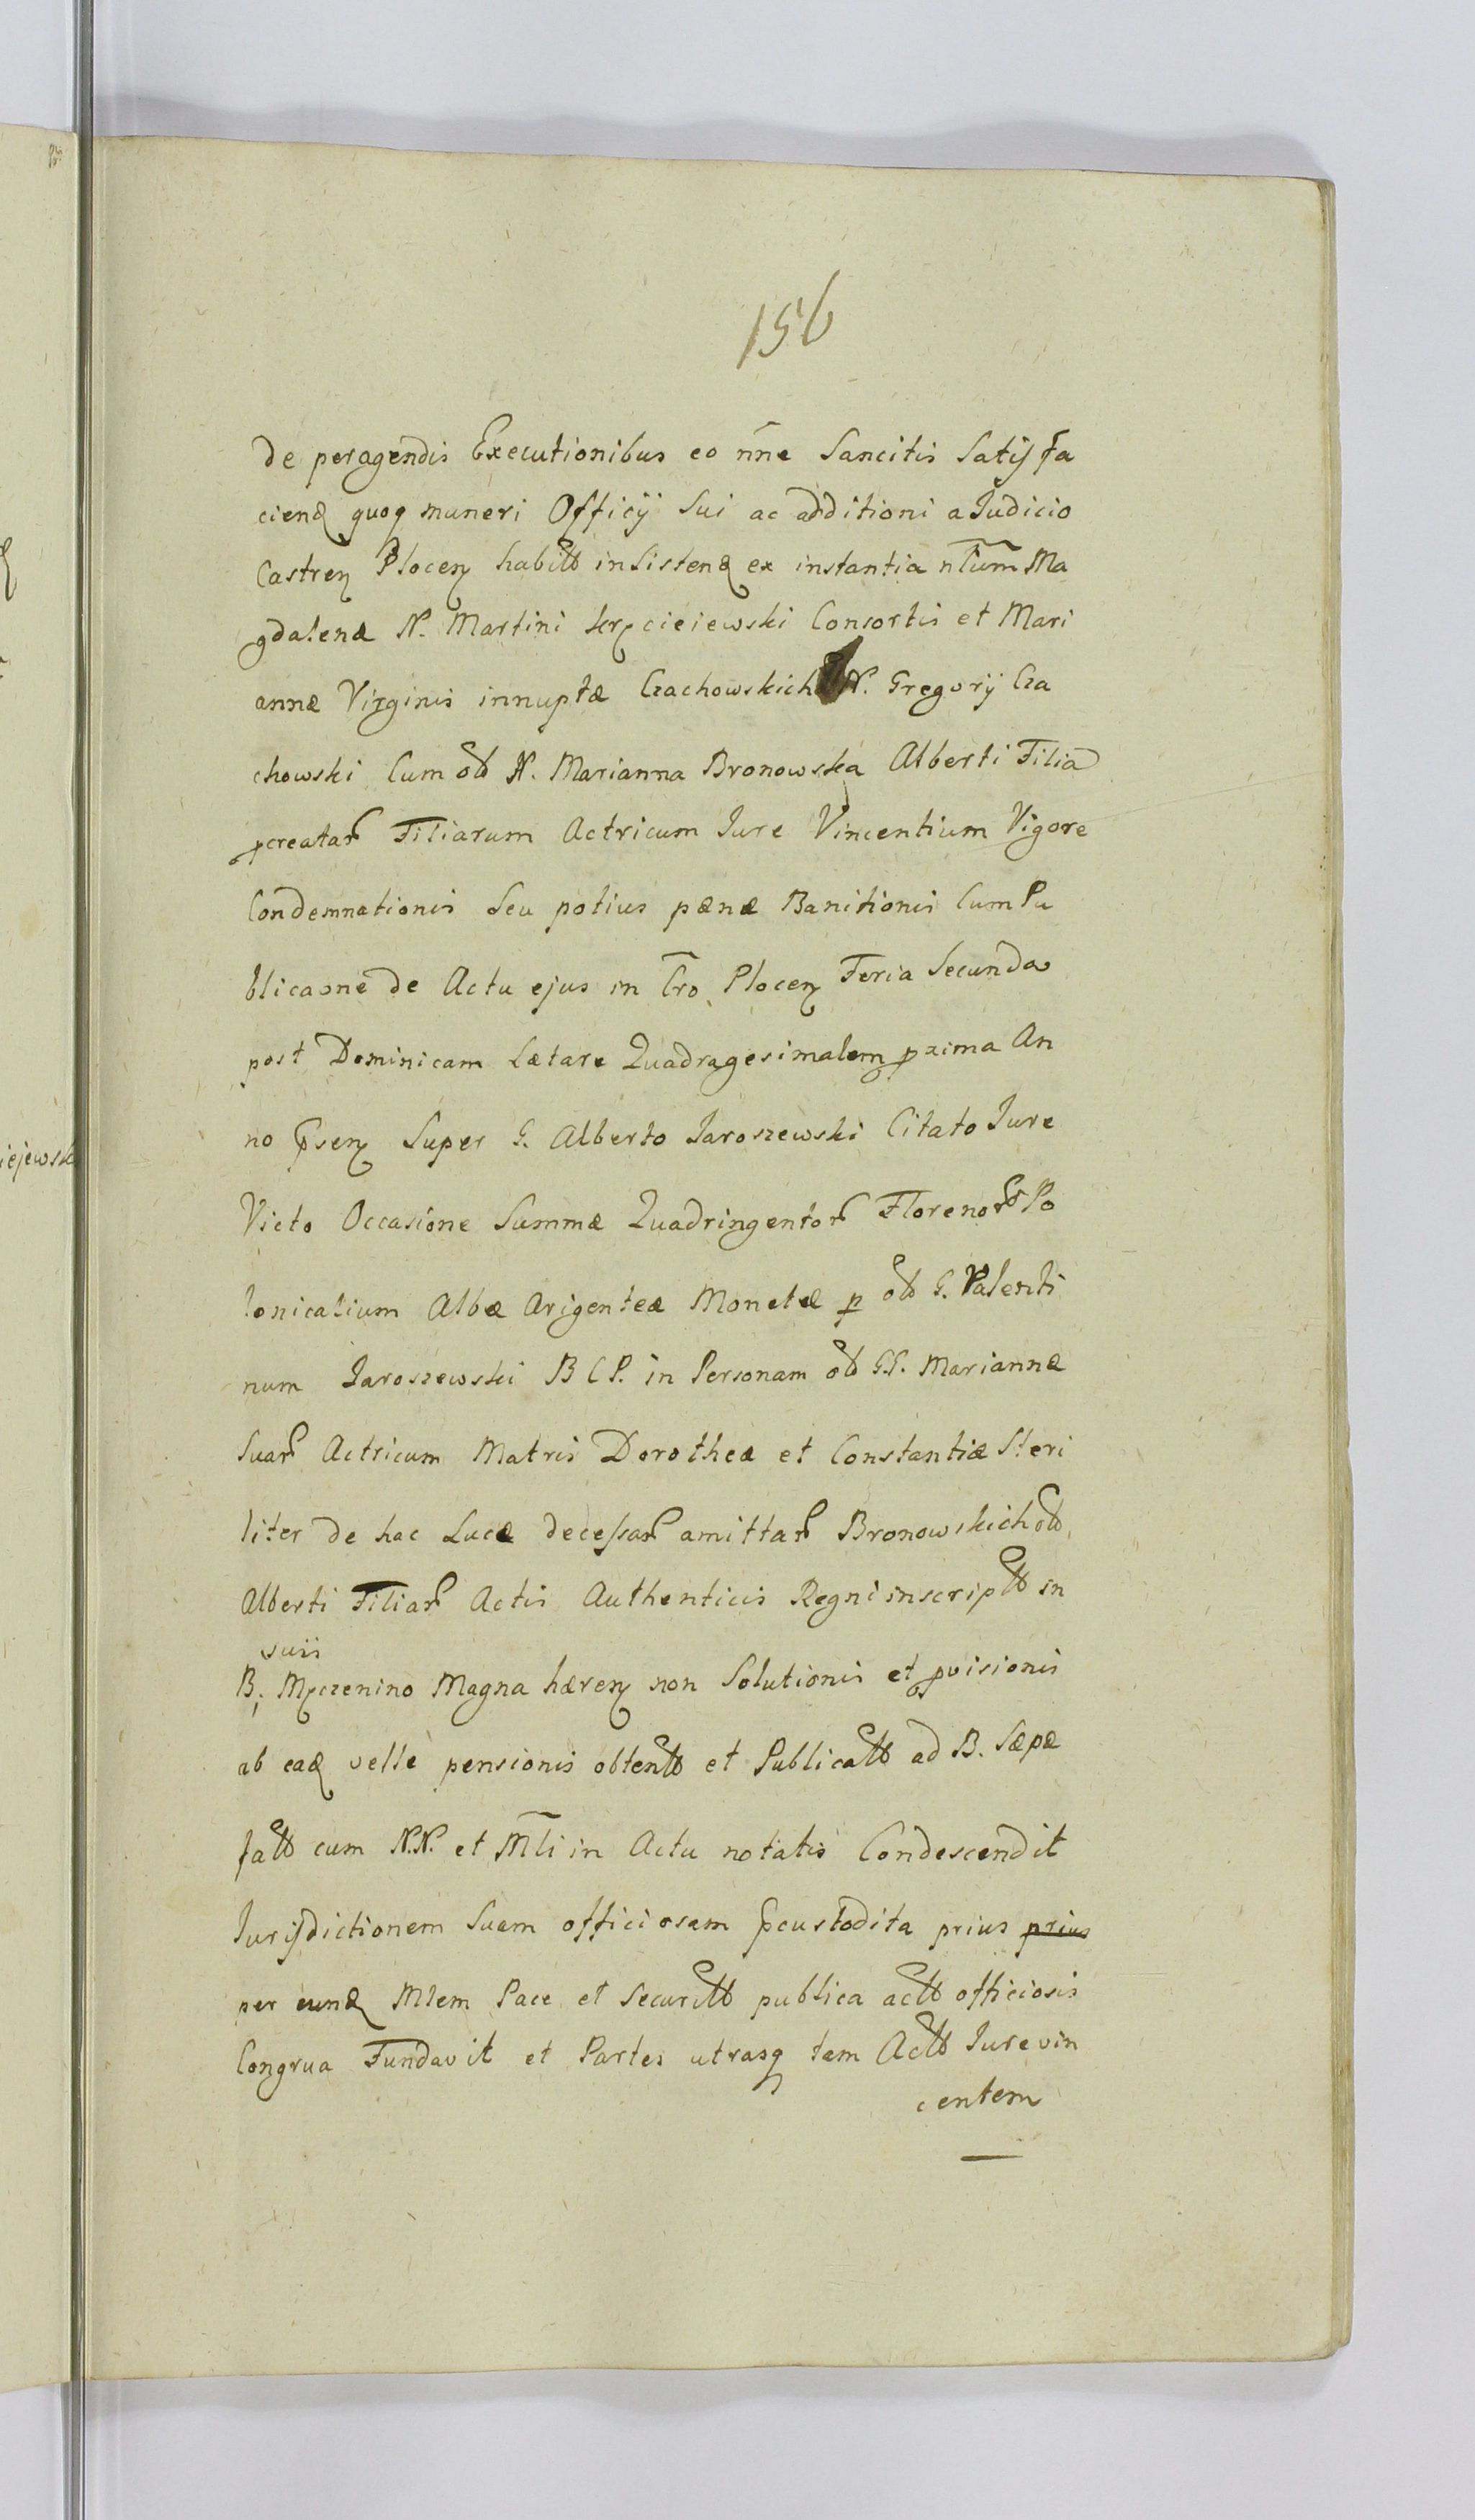 156
de peragendis Executionibus eo nne Sancitis Satisfa
ciend quoq muneri Officij Sui ac additioni a Judicio
Castren Plocen habitt insistend ex instantia nlium Ma
gdalenæ N. Martini Consortis et Mari
annæ Virginis innuptæ Czachowskich N. Gregorij Cza
chowski Cum N. Marianna Bronowska Alberti Filia
pcreatar Filiarum Actricum Jure Vincentium Vigore
Condemnationis Seu potius pænæ Banitionis Cum Pu
blicaone de Actu ejus in Cro Plocen Feria Secunda
post Dominicam Lætare Quadragesimalem pxima An
no psen Super G. Alberto Jaroszewski Citato Jure
Victo Occasione Summæ Quadringentor Florenor Po
lonicalium Albæ Arigenteæ Monetæ p G. Valenti
num Jaroszewski B C P. in Personam GG. Mariannæ
Suar Actricum Matris Dorotheæ et Constantiæ Steri
liter de hac Lucæ decessar amittar Bronowskich
Alberti Filiar Actis Authenticis Regni inscriptt in
suis
B; Męczenino Magna hæren non Solutionis et pvisionis
ab ead velle pensionis obtentt et Publicatt ad B. Sæpæ
fatt cum N.N. et Mli in Actu notatis Condescendit
Jurisdictionem Suam officiosam pcustodita prius prius
per eund Mlem Pace et Securitt publica actt officiosis
Congrua Fundavit et Partes utrasq tam Actt Jure vin
centem
iejewsk